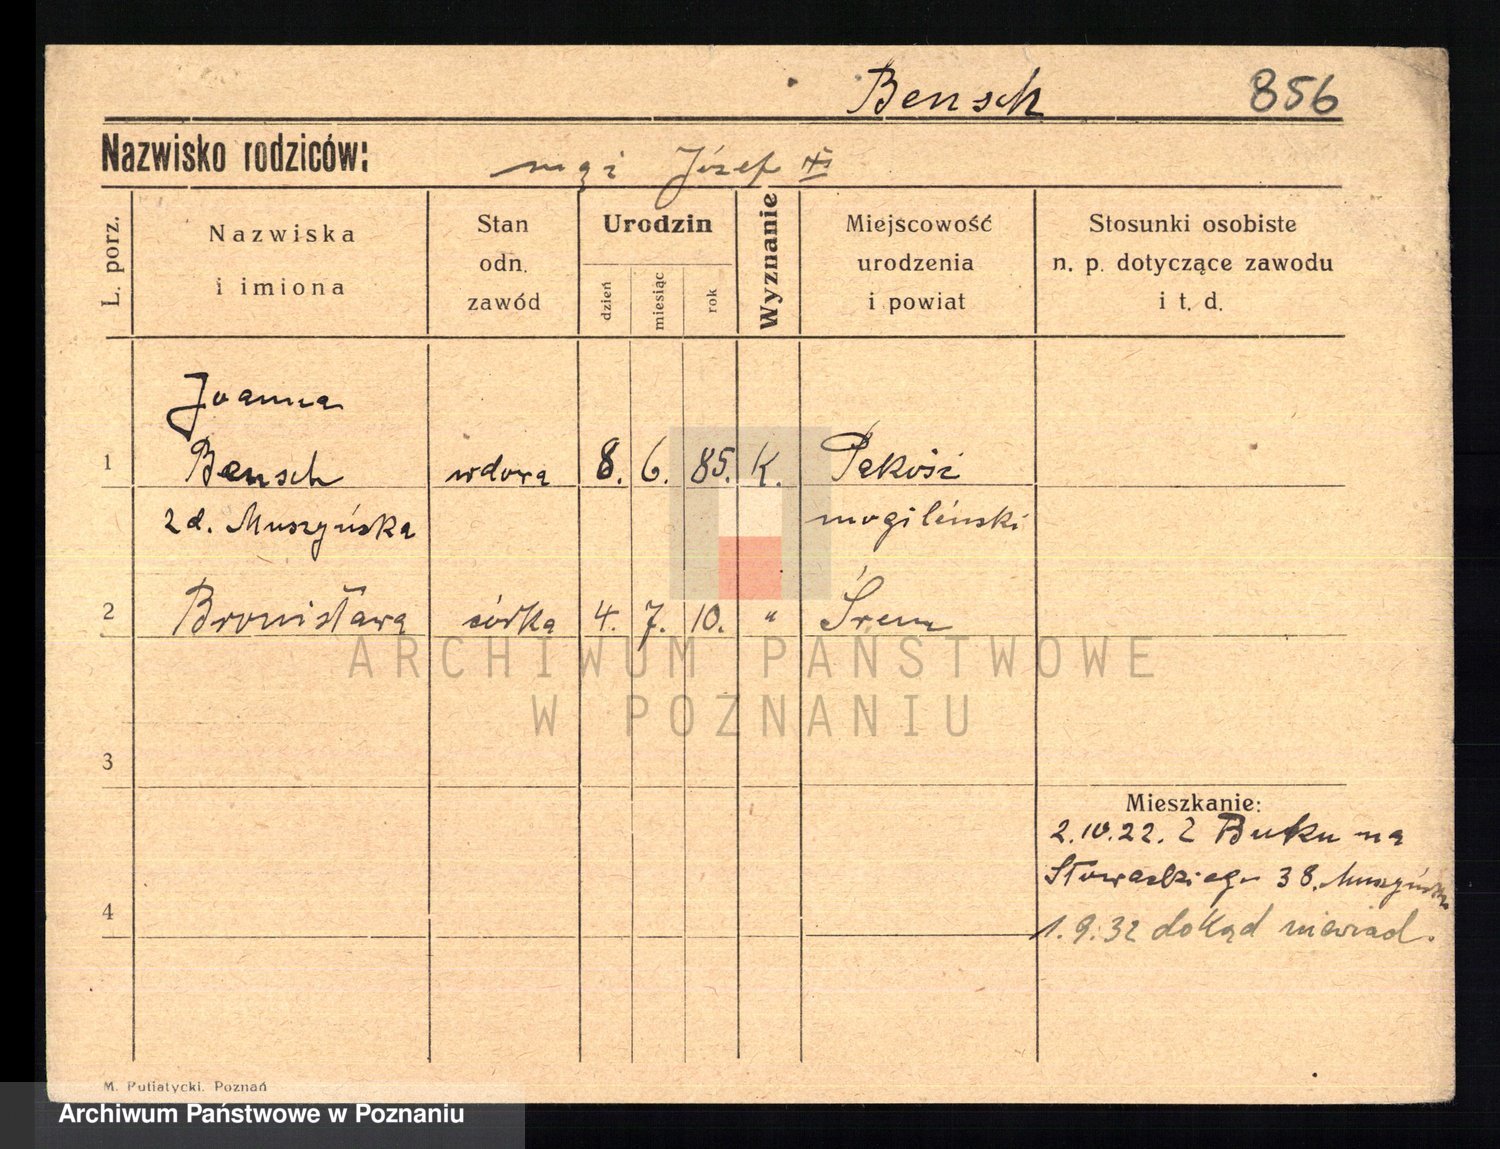 Bensch 856
Nazwisko rodziców:
mąż Józef
L. porz.
Nazwiska
i imiona
Stan
odn.
zawód
Urodzin
dzień
miesiąc
rok
Wyznanie
Miejscowość
urodzenia
i powiat
Stosunki osobiste
n. p. dotyczące zawodu
i t. d.
Joanna
1 Bensch wdowa 8. 6. 85. K. Pakość
2 d. Muszyńska mogileński
2 Bronisława córka 4. 7. 10. " Śrem
ARCHIWUM PAŃSTWOWE
W POZNANIU
3
Mieszkanie:
2.10.22. Z Buku na
Słowackiego 38. Muszyńska
4
1.9.32 dokąd niewiad.
M. Putiatycki. Poznań
Archiwum Państwowe w Poznaniu